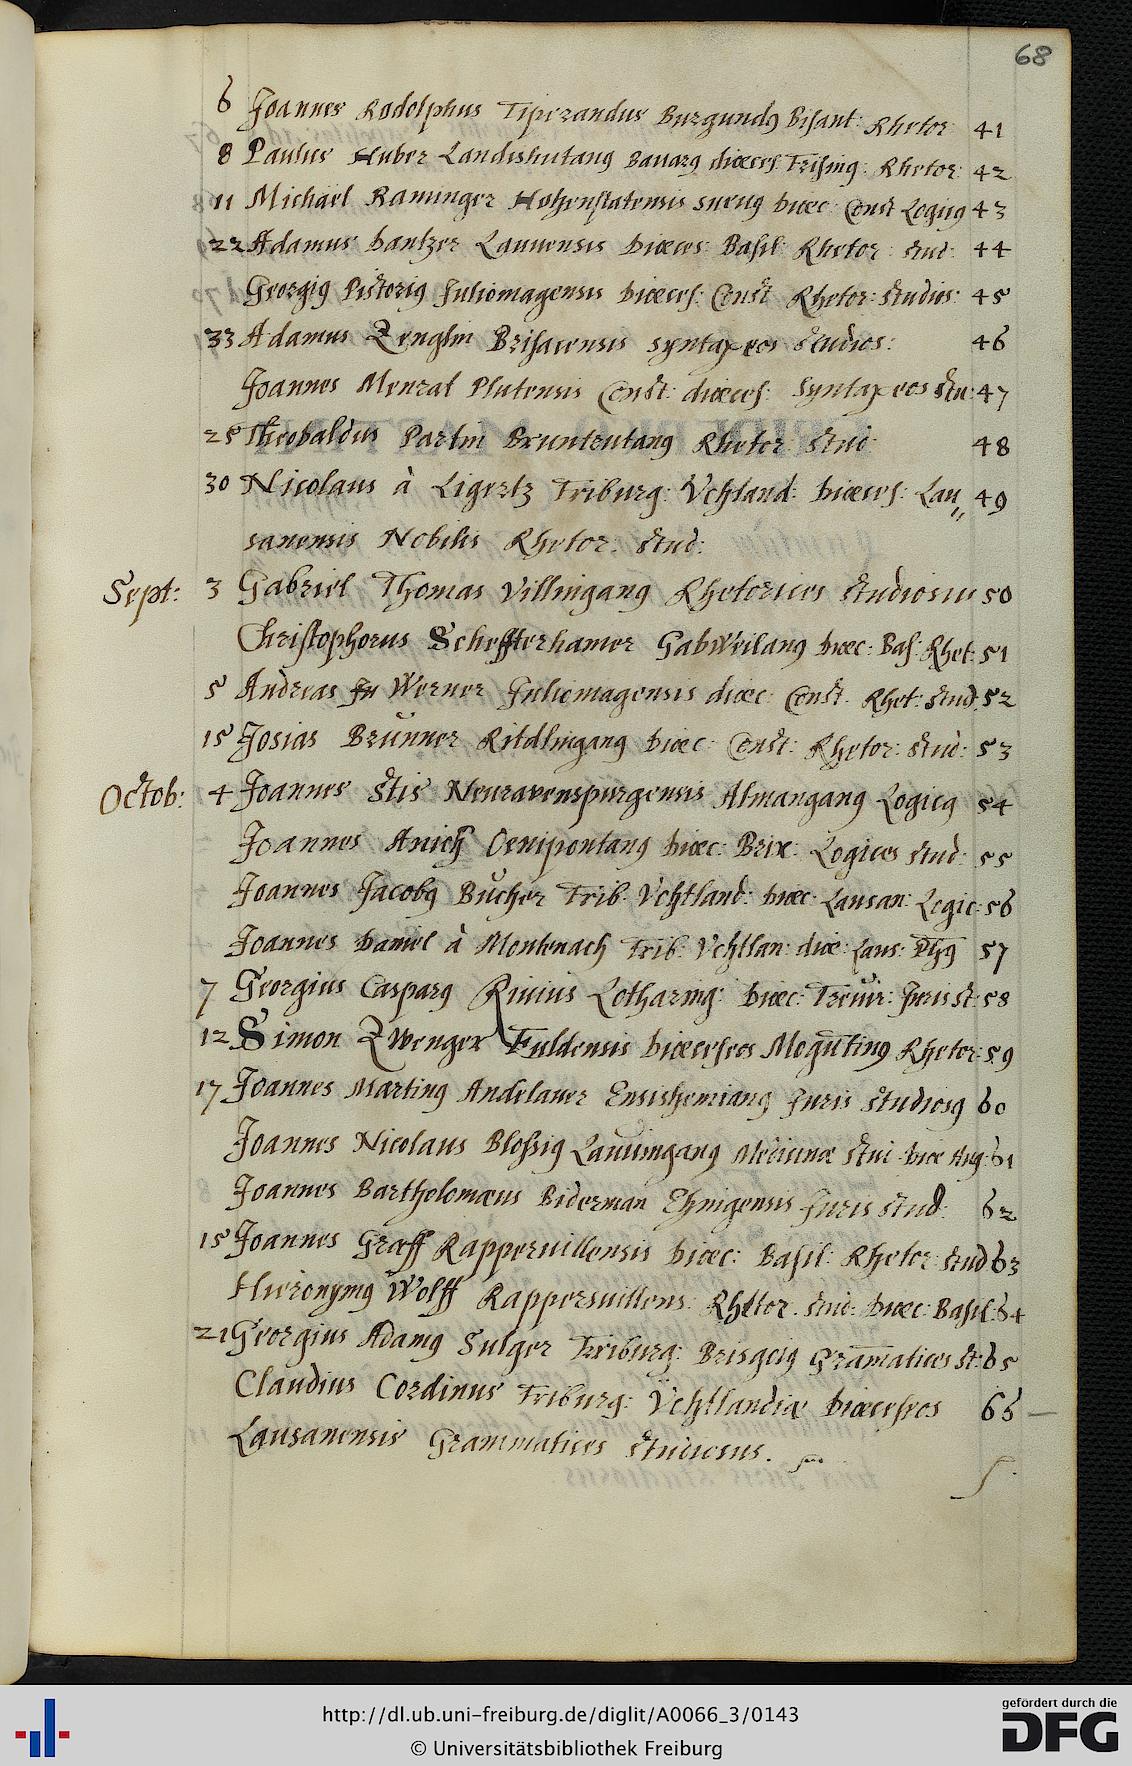 68
6 Joannes Rodolphus Tiperandus Burgundus Bisant: Rhetor 41
8 Paulus Huber Landishutanus Bauarus dioeces: Frising: Rhetor: 42
11 Michaël Raminger Hohenstatensis sueuus dioec: Const Logicus 43
22 Adamus bantzer Lauuensis dioeces: Basil: Rhetor: stud: 44
Georgius Pistorius Juliomagensis dioeces: Const Rhetor: studios: 45
33 Adamus Zenglin Brisacensis syntaxeos studios: 46
Joannes Menzat Plutensis Const: dioeces: Syntaxeos stu: 47
25 Theobaldus Partin Bruntrutanus Rhetor: stud 48
30 Nicolaus à Ligertz Friburg: Vchtland: dioeces: Lau„ 49
sanensis Nobilis Rhetor: stud:
Sept: 3 Gabriel Thomas Villinganus Rhetorices studiosus 50
Christophorus Schefferhamer Gabweilanus dioec: Bas: Rhet: 51
5 Andreas Werner Juliomagensis dioec: Const. Rhet: stud. 52
15 Josias Brunner Ritdlinganus dioec: Const: Rhetor: stud: 53
Octob: 4 Joannes Stis Neuravenspurgensis Almanganus Logicus 54
Joannes Anich Oenipontanus dioec: Brix: Logices stud: 55
Joannes Jacobus Bucher Frib. Vchtland: dioec: Lausan: Logic: 56
Joannes Daniel à Montenach Frib: Vchtlan: dioe: Laus: Phys 57
7 Georgius Casparus Riuius Lotharing: dioec: Treuir: Juris st: 58
12 Simon Zwenger Fuldensis dioeceseos Mogutinus Rhetor: 59
17 Joannes Martinus Andelauer Ensishemianus Juris studiosus 60
Joannes Nicolaus Blossius Lauuinganus Medicinae stud. dioe Aug: 61
Joannes Bartholomaeus Biderman Ehnigensis Juris stud: 62
15 Joannes Graeff Rapperuillensis dioec: Basil: Rhetor: stud 63
Hieronymus Wolff Rappersuillens: Rhetor. stud: dioec: Basil: 64
21 Georgius Adamus Sulger Friburg: Brisgoius Gramatices st: 65
Claudius Cordinus Friburg: Vchtlandiae dioeceseos 66
Lausanensis Grammatices studiosus.
http://dl.ub.uni-freiburg.de/diglit/A0066_3/0143
© Universitätsbibliothek Freiburg
gefördert durch die
DFG